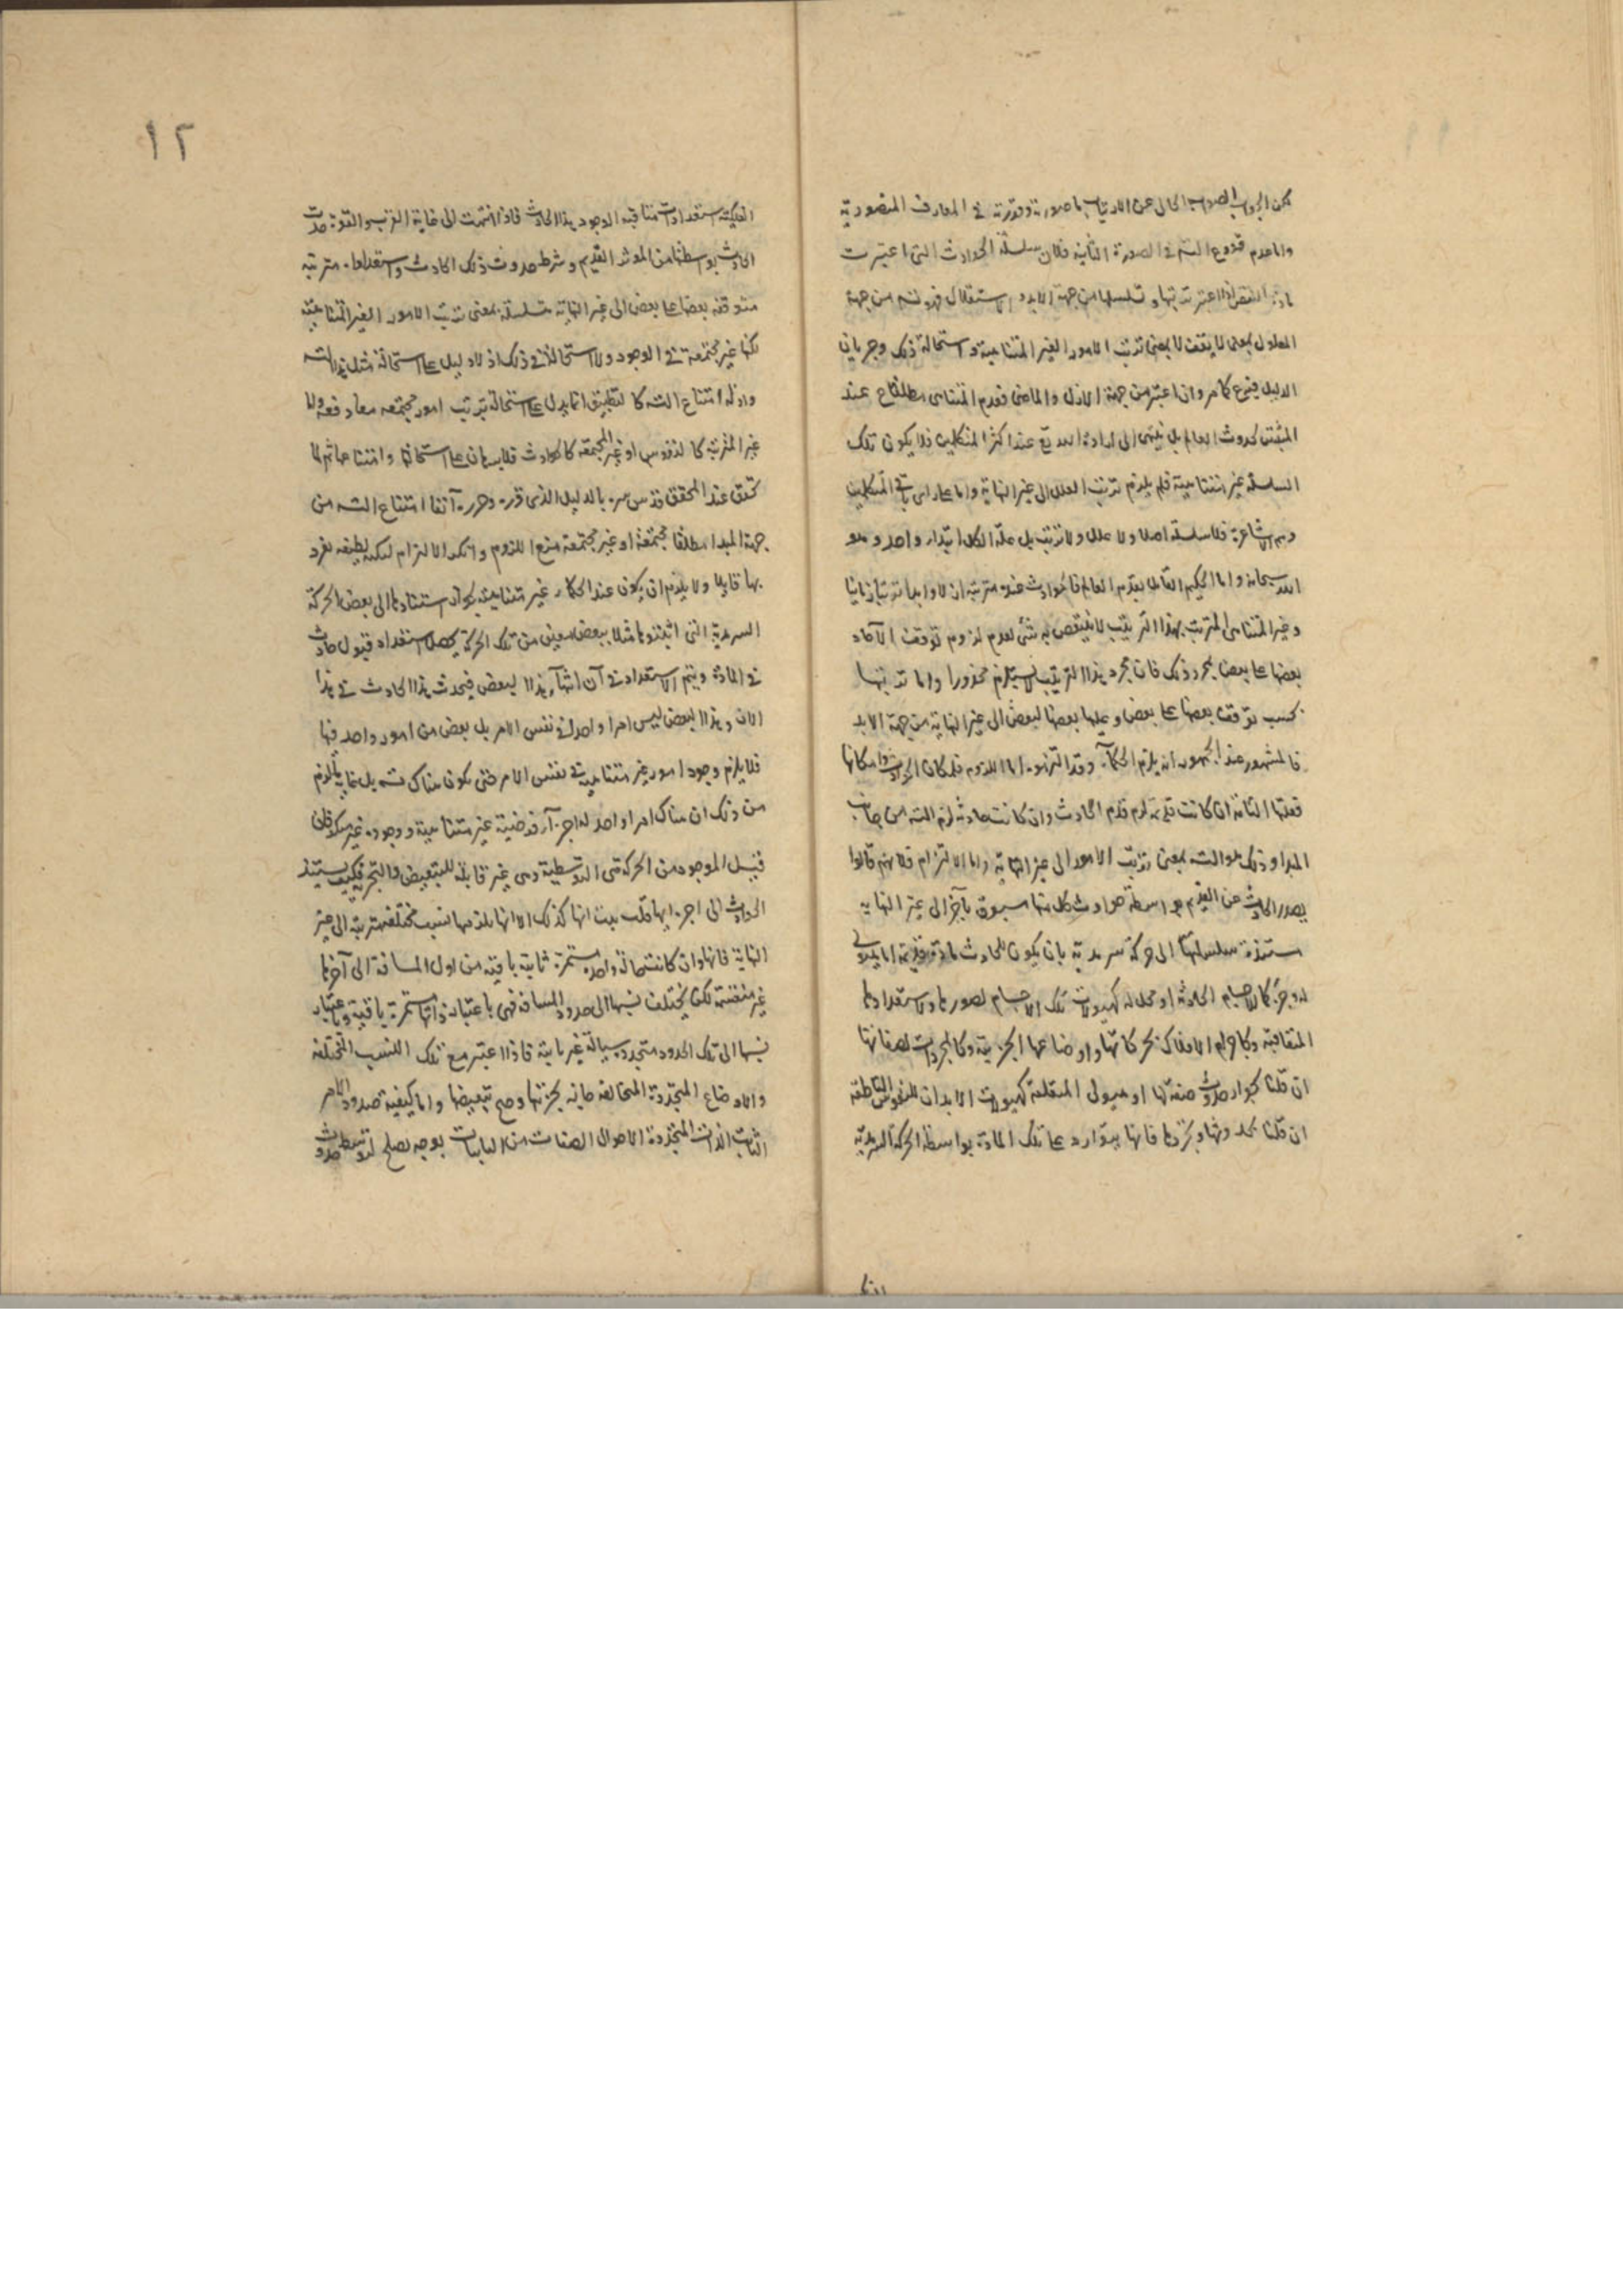 يمكن الجواب الصواب الخالى عن الارتياب ما صورته وقررته فى المعارف المنصورية
واما عدم قدوع التسـ فى الصورة الثانية فلان سلسلة الحوادث التى اعتبرت
مادة النقض اذا اعتبر ترتبها وتسلسلها من جهة الابد والاستقبال فهو تسـ من جهة
المعلول بمعنى لا يقف لا بمعنى ترتب الامور الغير المتناهية واستحالة ذلك وجريان
الدليل فيه ممنوع كما مر وان اعتبر من جهة الازل والماضى فعدم التناهى مطلقا عند
المثبتين لحدوث العالم بل ينتهى الى ارادة الله تعالى عند اكثر المتكلمين فلا يكون تلك
السلسلة غير متناهية فلم يلزم ترتب العلل الى غير النهاية واما على راى باقى المتكلمين
وهم الاشاعرة فلا سلسلة اصلا ولا علل ولا ترتب بل علة الكل ابتداء واحد وهو
الله سبحانه واما الحكيم القائل بقدم العالم فالحوادث عنده مترتبة ان لاوابدا ترتبا زمانيا
وغير المتناهى المترتب بهذا الترتيب لا ينتقض به شئ لعدم لزوم توقف الآحاد
بعضها على بعض بمجرد ذلك فان مجرد هذا الترتيب لا يستلزم محذورا واما ترتبها
بحسب توقف بعضها على بعض وعلية بعضها لبعض الى غير النهاية من جهة الابد
فالمشهور عند الجمهور انه يلزم الحكماء وقد التزموه اما اللزوم فلمكان الحوادث وامكانها
فعلتها التامة ان كانت قديمة لزم قدم الحادث وان كانت حادثة لزم التسـ من جانب
المبدا وذلك هو التسـ بمعنى ترتب الامور الى غير النهاية واما الالتزام فلانهم قالوا
يصدر الحادث عن القديم بواسطة حوادث كل منها مسبوق بآخر الى غير النهاية
مستندة سلسلتها الى حركة سرمدية بان يكون للحادث مادة قديمة اما
له وجزء كالاجسام الحادثة او محل له كهيولات تلك الاجسام لصورها واستعداداتها
المتعاقبة وكاجرام الافلاك بحركاتها واوضاعها الجزئية وكالمجردات لصفاتها
ان قلنا بجواز حدوث صفة لها او هيولى المتعلقة كهيولات الابدان للنفوس الناطقة
ان قلنا بحدوثها وتجردها فانها يتوارد على تلك المادة بواسطة الحركة السرمدية
١٢
الفلكية استعدادات متعاقبة الوجود هذا الحادث فاذا انتهت الى غاية القرب والقوة حدث
الحادث بواسطتها من الموثر القديم وشرط حدوث ذلك الحادث واستعداده مترتبة
متوقفة بعضها على بعض الى غير النهاية متسلسلة بمعنى ترتب الامور الغير المتناهية
لكنها غير مجتمعة فى الوجود ولا استحالة فى ذلك اذ لا دليل على استحالة مثل هذا التسـ
وادلة امتناع التسـ كالتطبيق انما يدل على استحالة ترتب امور مجتمعة معا دفعة واما
غير المترتبة كالنفوس او غير المجتمعة كالحوادث فلا برهان على استحالتها وامتناعها ثم لما
تحقق عند المحقق قدس سره بالدليل الذى قرره وحرره آنفا امتناع التسـ من
جهة المبدا مطلقا مجتمعة او غير مجتمعة منع اللزوم وانكر الالتزام لنكتة لطيفة تفرد
بها قايلا ولا يلزم ان يكون عند الحكماء غير متناهية بجواز استنادها الى بعض الحركة
السرمدية التى اثبتوها مثلا ببعض معين من تلك الحركة يحصل استعداد قبول حادث
فى المادة ويتم الاستعداد فى آن انتهاء هذا البعض فيحدث هذا الحادث فى هذا
الان وهذا البعض ليس امرا واحدا فى نفس الامر بل بعض من امور واحد فيها
فلا يلزم وجود امور غير متناهية فى نفس الامر حتى يكون هناك تسـ بل غاية ما يلزم
من ذلك ان هناك امرا واحدا له اجزاء فرضية غير متناهية ووجوده غير منكر فان
قيل الموجود من الحركة هى التوسطية وهى غير قابلة للتبعيض والتجزية فكيف يستند
الحوادث الى اجزائها قلت هب انها كذلك الا انها يلزمها نسب مختلفة مترتبة الى غير
النهاية فانها وان كانت حالة واحدة مستمرة ثابتة باقية من اول المسافة الى آخرها
غير منقسمة لكن يختلف نسبها الى حدود المسافة فهى باعتبار ذاتها مستمرة باقية وباعتبار
نسبها الى تلك الحدود متجددة سيالة غير ثابتة فاذا اعتبر مع تلك النسب المختلفة
والاوضاع المتجددة المتخالفة جانب تجزيتها وصح تبعيضها واما كيفية صدور الامر
الثابت الذات المتجددة الاحوال الصفات من الثابتات بوجه يصلح لتوسط حدوث